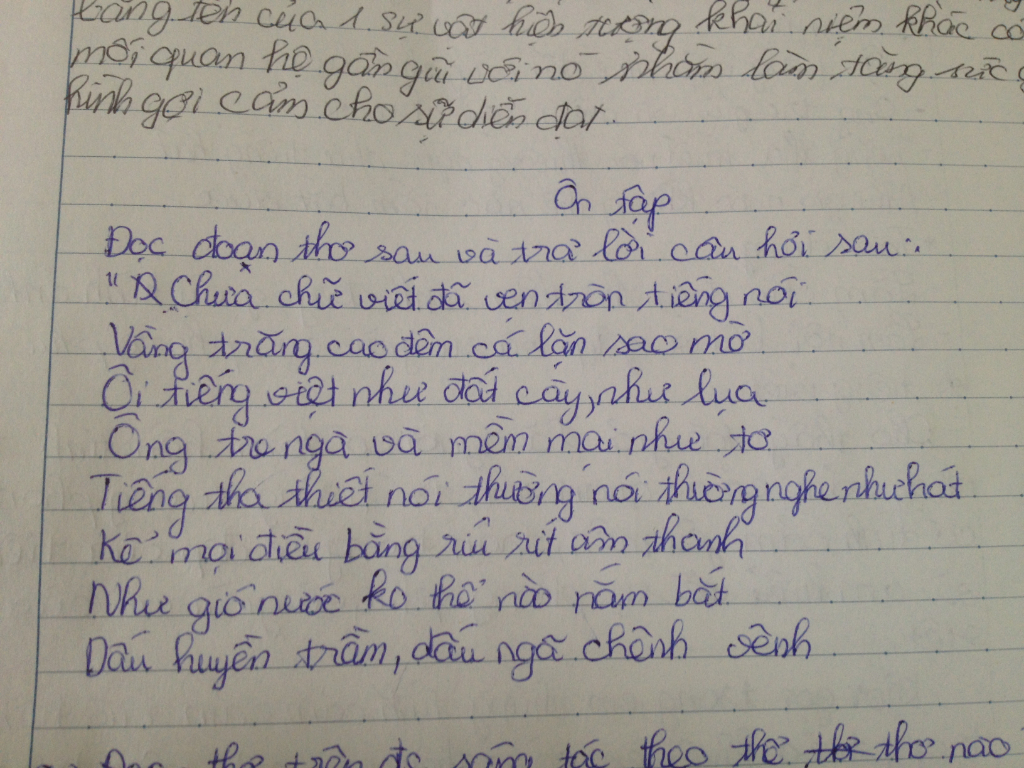 bằng tên của 1 sự vật hiện tượng khái niệm khác có
mối quan hệ gần gũi với nó nhằm làm tăng sức g
hình gợi cảm cho sự diễn đạt.
Ôn tập
Đọc đoạn thơ sau và trả lời câu hỏi sau:.
" Chưa chữ viết đã vẹn tròn tiếng nói
Vầng trăng cao đêm cá lặn sao mờ
Ôi tiếng việt như đất cày, như lụa
Óng tre ngà và mềm mại như tơ
Tiếng tha thiết nói thường nói thường nghe như hát
Kể mọi điều bằng ríu rít âm thanh
Như gió nước ko thể nào nắm bắt
Dấu huyền trầm, dấu ngã chênh vênh
thơ trên đc sáng tác theo thể thơ nào